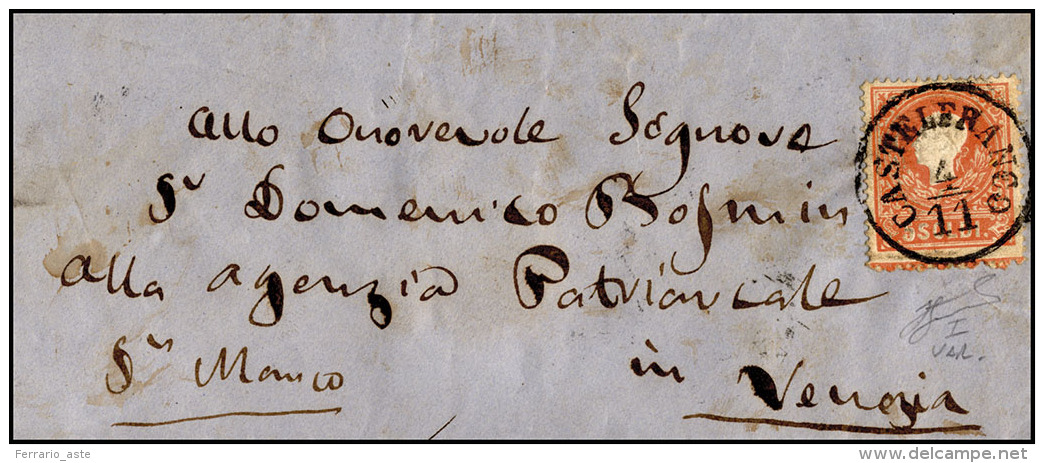 allo Onorevole Signore
Sr Domenico Rosmin
alla agenzia Patriarcale
Sn Marco in Venezia
CASTELFRANCO
4
11
5 SOLDI.
I
VAR.
Ferrario_aste
delcampe.net